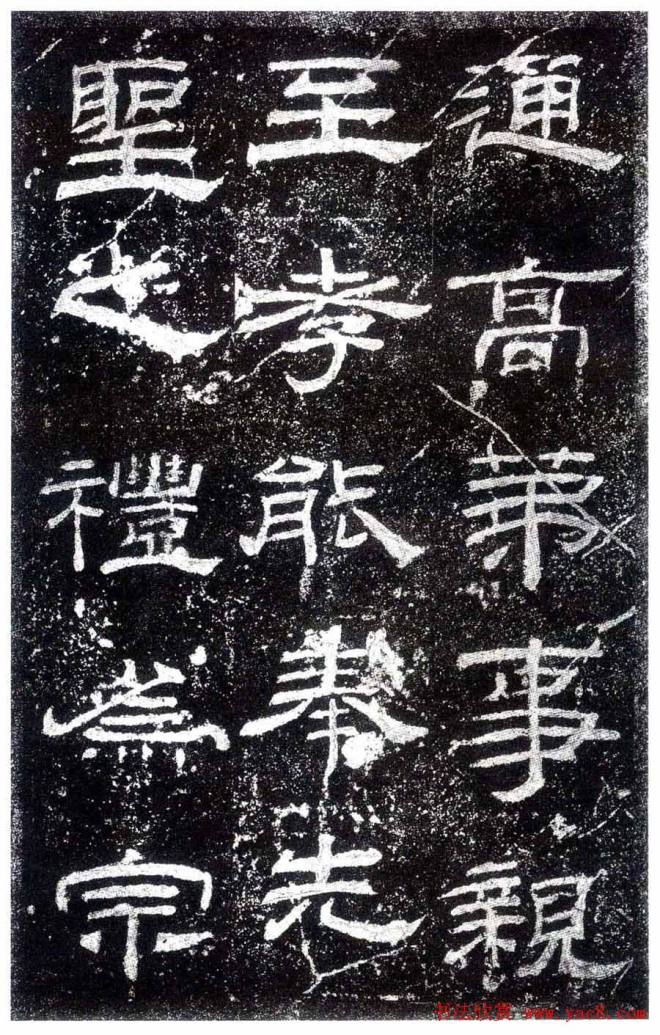 通高第事親
至孝能奉先
聖之禮為宗
书法欣赏 www.yac8.com